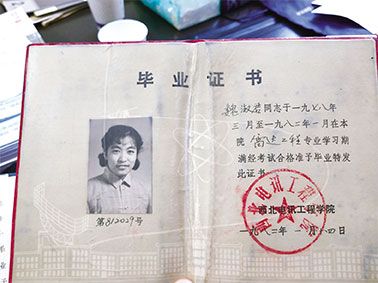 毕业证书
魏淑君同志于一九七八年
三月至一九八二年一月在本
院雷达工程专业学习期
满经考试合格准予毕业特发
此证书。
第812029号
西北电讯工程学院
西北电讯工程学院
一九八二年一月十四日